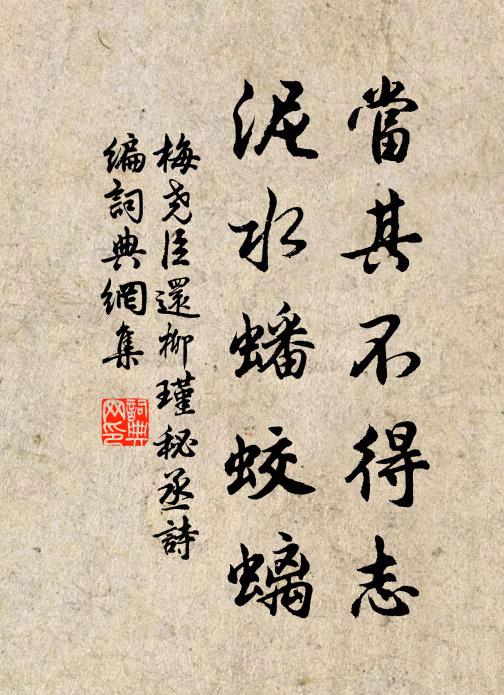 當其不得志
泥水蟠蛟螭
梅尧臣還柳瑾秘丞詩
編詞典網集
詞典网印